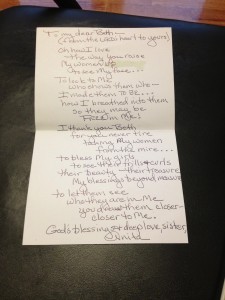 To my dear Beth —
(from the LORD's heart to yours)
Oh how I love
the way you raise
My women up
to see My face...
To look to Me
who shows them who —
I made them to be...
how I breathed into them
so they may be
FREE in ME!
I thank you Beth
for you never tire
taking My women
from the mire...
to bless My girls
to see their frills & curls
their beauty — their treasure
My blessings beyond measure
to let them see
who they are in Me
you draw them closer —
closer to Me.
God's blessings & deep love, sister,